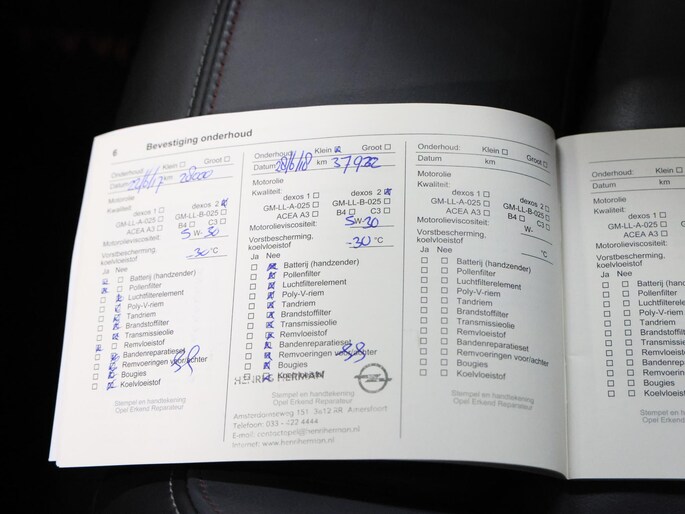 6 Bevestiging onderhoud
Onderhoud: Klein Groot
Datum km 28000
Motorolie
Kwaliteit:
dexos 1 dexos 2
GM-LL-A-025 GM-LL-B-025
ACEA A3 B4 C3
Motorolieviscositeit: 5 W- 30
Vorstbescherming,
koelvloeistof -30 °C
Ja Nee
Batterij (handzender)
Pollenfilter
Luchtfilterelement
Poly-V-riem
Tandriem
Brandstoffilter
Transmissieolie
Remvloeistof
Bandenreparatieset
Remvoeringen voor/achter
Bougies
Koelvloeistof
Stempel en handtekening
Opel Erkend Reparateur
Onderhoud: Klein Groot
Datum 28/6/18 km 37922
Motorolie
Kwaliteit:
dexos 1 dexos 2
GM-LL-A-025 GM-LL-B-025
ACEA A3 B4 C3
Motorolieviscositeit: 5W-30
Vorstbescherming,
koelvloeistof -30 °C
Ja Nee
Batterij (handzender)
Pollenfilter
Luchtfilterelement
Poly-V-riem
Tandriem
Brandstoffilter
Transmissieolie
Remvloeistof
Bandenreparatieset
Remvoeringen voor/achter
Bougies
Koelvloeistof
HERMAN
Amsterdamseweg 151, 3812 RR Amersfoort
Telefoon: 033 - 422 4444
E-mail: contactopel@hennherman.nl
Internet: www.hennherman.nl
Onderhoud: Klein Groot
Datum km
Motorolie
Kwaliteit:
dexos 1 dexos 2
GM-LL-A-025 GM-LL-B-025
ACEA A3 B4 C3
Motorolieviscositeit: W-
Vorstbescherming,
koelvloeistof °C
Ja Nee
Batterij (handzender)
Pollenfilter
Luchtfilterelement
Poly-V-riem
Tandriem
Brandstoffilter
Transmissieolie
Remvloeistof
Bandenreparatieset
Remvoeringen voor/achter
Bougies
Koelvloeistof
Stempel en handtekening
Opel Erkend Reparateur
Onderhoud: Klein
Datum km
Motorolie
Kwaliteit:
dexos 1
GM-LL-A-025
ACEA A3
Motorolieviscositeit:
Vorstbescherming,
koelvloeistof
Ja Nee
Batterij (handz
Pollenfilter
Luchtfilterelem
Poly-V-riem
Tandriem
Brandstoffilter
Transmissieo
Remvloeistof
Bandenrepar
Remvoeringe
Bougies
Koelvloeistof
Stempel en h
Opel Erkend